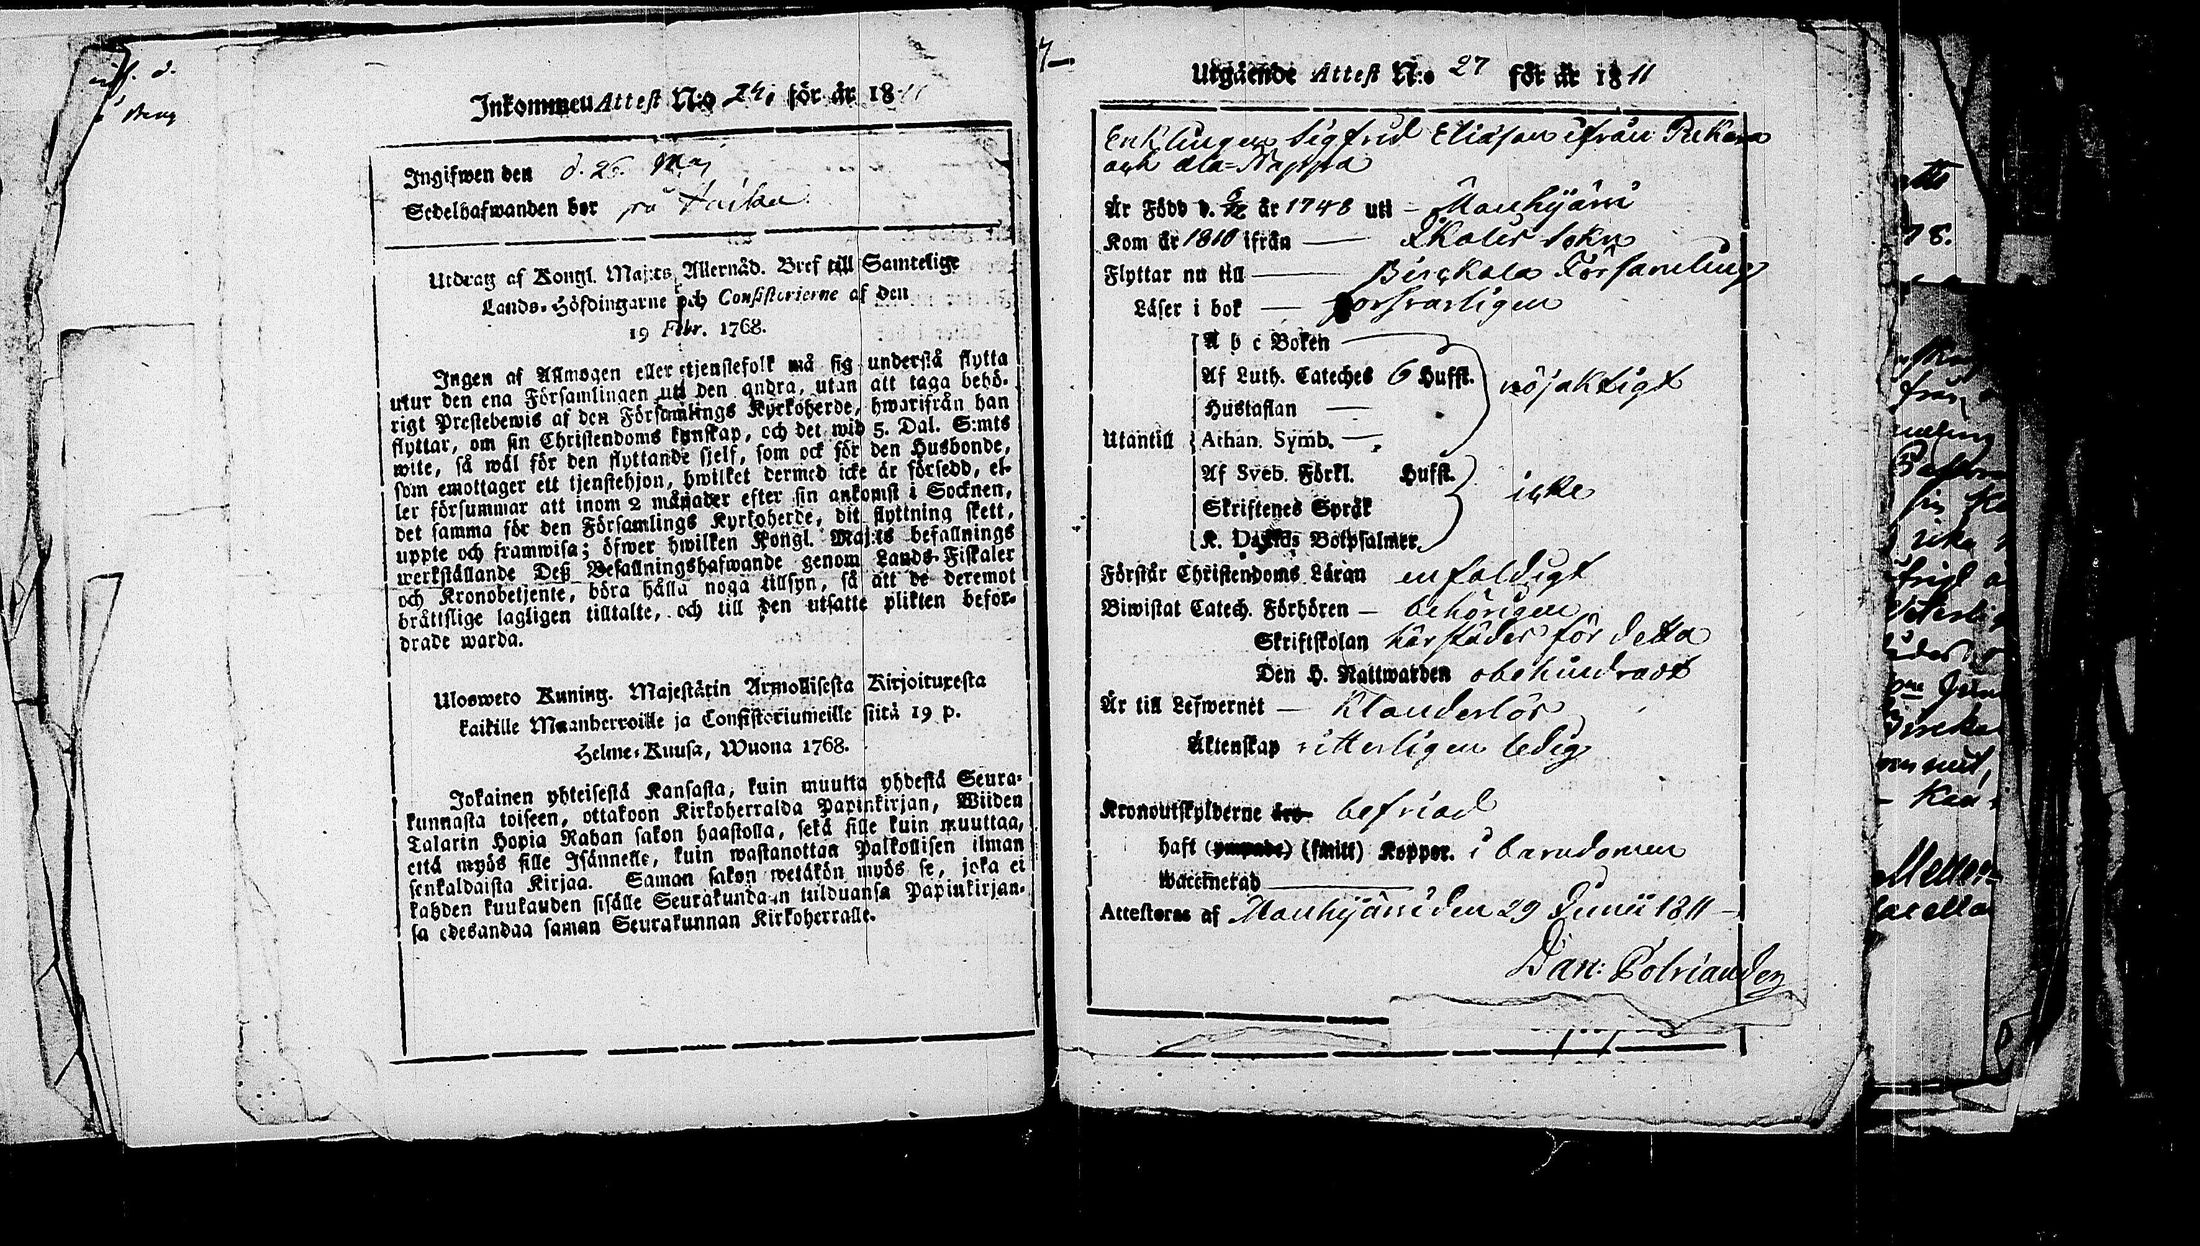 Inkommen Attest N:o 24. för år 1811
Ingifwen den d. 26. Maj
Sedelhafwanden bor på
Utdrag af Kongl. Maj:ts Allernåd. Bref till Samtelige
Lands-Höfdingarne och Consistorierne af den
19 Febr. 1768.
Ingen af Allmogen eller tjenstefolk må sig understå flytta
utur den ena Församlingen uti den andra, utan att taga behö-
rigt Prestebewis af den Församlings Kyrkoherde, hwarifrån han
flyttar, om sin Christendoms kunskap, och det wid 5. Dal. S:mts
wite, så wäl för den flyttande sjelf, som ock för den Husbonde,
som emottager ett tjenstehjon, hwilket dermed icke är försedd, el-
ler försummar att inom 2 månader efter sin ankomst i Socknen,
det samma för den Församlings Kyrkoherde, dit flyttning skett,
uppte och framwisa; öfwer hwilken Kongl. Maj:ts befallnings
werkställande Deß Befallningshafwande genom Lands-Fiskaler
och Kronobetjente, böra hålla noga tillsyn, så att de deremot
bråttslige lagligen tilltalte, och till den utsatte plikten befor-
drade warda.
Ulosweto Kuning. Majestätin Armollisesta Kirjoituxesta
kaikille Maanherroille ja Consistoriumeille siitä 19 p.
Helme-Kuusa, Wuona 1768.
Jokainen yhteisestä Kansasta, kuin muutta yhdestä Seura-
kunnasta toiseen, ottakoon Kirkoherralda Papinkirjan, Wiiden
Talarin Hopia Rahan sakon haastolla, sekä sille kuin muuttaa,
että myös sille Isännelle, kuin wastanottaa Palkollisen ilman
senkaldaista Kirjaa. Saman sakon wetäkön myös se, joka ei
kahden kuukauden sisälle Seurakundaan tulduansa Papinkirjan-
sa edesandaa saman Seurakunnan Kirkoherralle.
Utgående Attest N:o 27 för år 1811
Enklingen Sigfrid Eliasson ifrån
och ala-Nappa
Är Född d. år 1748 uti – Mouhijärvi
Kom år 1810 ifrån — Ikalis Sokn
Flyttar nu till — Birckala Församling
Läser i bok — forsvarligen
A b c Boken —
Af Luth. Cateches 6 Hufst. nöjaktigt
Hustaflan —
Utantill Athan. Symb. —
Af Sveb. Förkl. Hufst.
icke
Skriftenes Språk
K. Davids Botpsalmer
Förstår Christendoms Läran enfaldigt
Biwistat Catech. Förhören – behörigen
Skriftskolan härstädes för detta
Den H. Nattwarden obehindradt
Är till Lefwernet — Klanderlös
Äktenskap ledig
Kronoutskylderne äro befriad
haft (ympade) (smitt) Koppor. i barndomen
waccinerad —
Attesteras af Mouhijärvi den 29 Junii 1811 —
Dan: Polviander